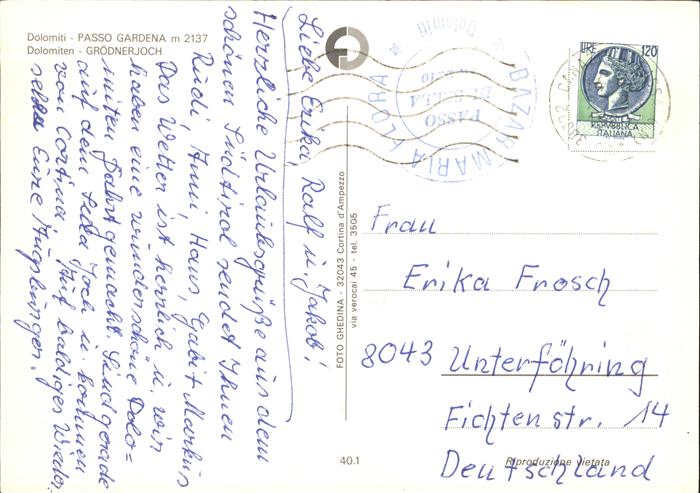 Dolomiti - PASSO GARDENA m 2137
Dolomiten - GRÖDNERJOCH
Liebe Erika, Ralf u. Jakob!
Herzliche Urlaubsgrüße aus dem
schönen Südtirol sendet Ihnen
Rudi, Anni, Hans, Gabi + Markus
Das Wetter ist herrlich u. wir
haben eine wunderschöne Dolo=
mitenfahrt gemacht. Sind gerade
auf dem Sella Joch u. kommen
von Cortina. Auf baldiges Wieder
sehen Eure
FOTO GHEDINA - 32043 Cortina d'Ampezzo
via verocai 45 - tel. 3505
BAZAR MARIA FLORA
PASSO
DI SELLA
Dolomiti
LIRE 120
REPVBBLICA
ITALIANA
Frau
Erika Frosch
8043 Unterföhring
Fichtenstr. 14
Deutschland
40.1
Riproduzione vietata